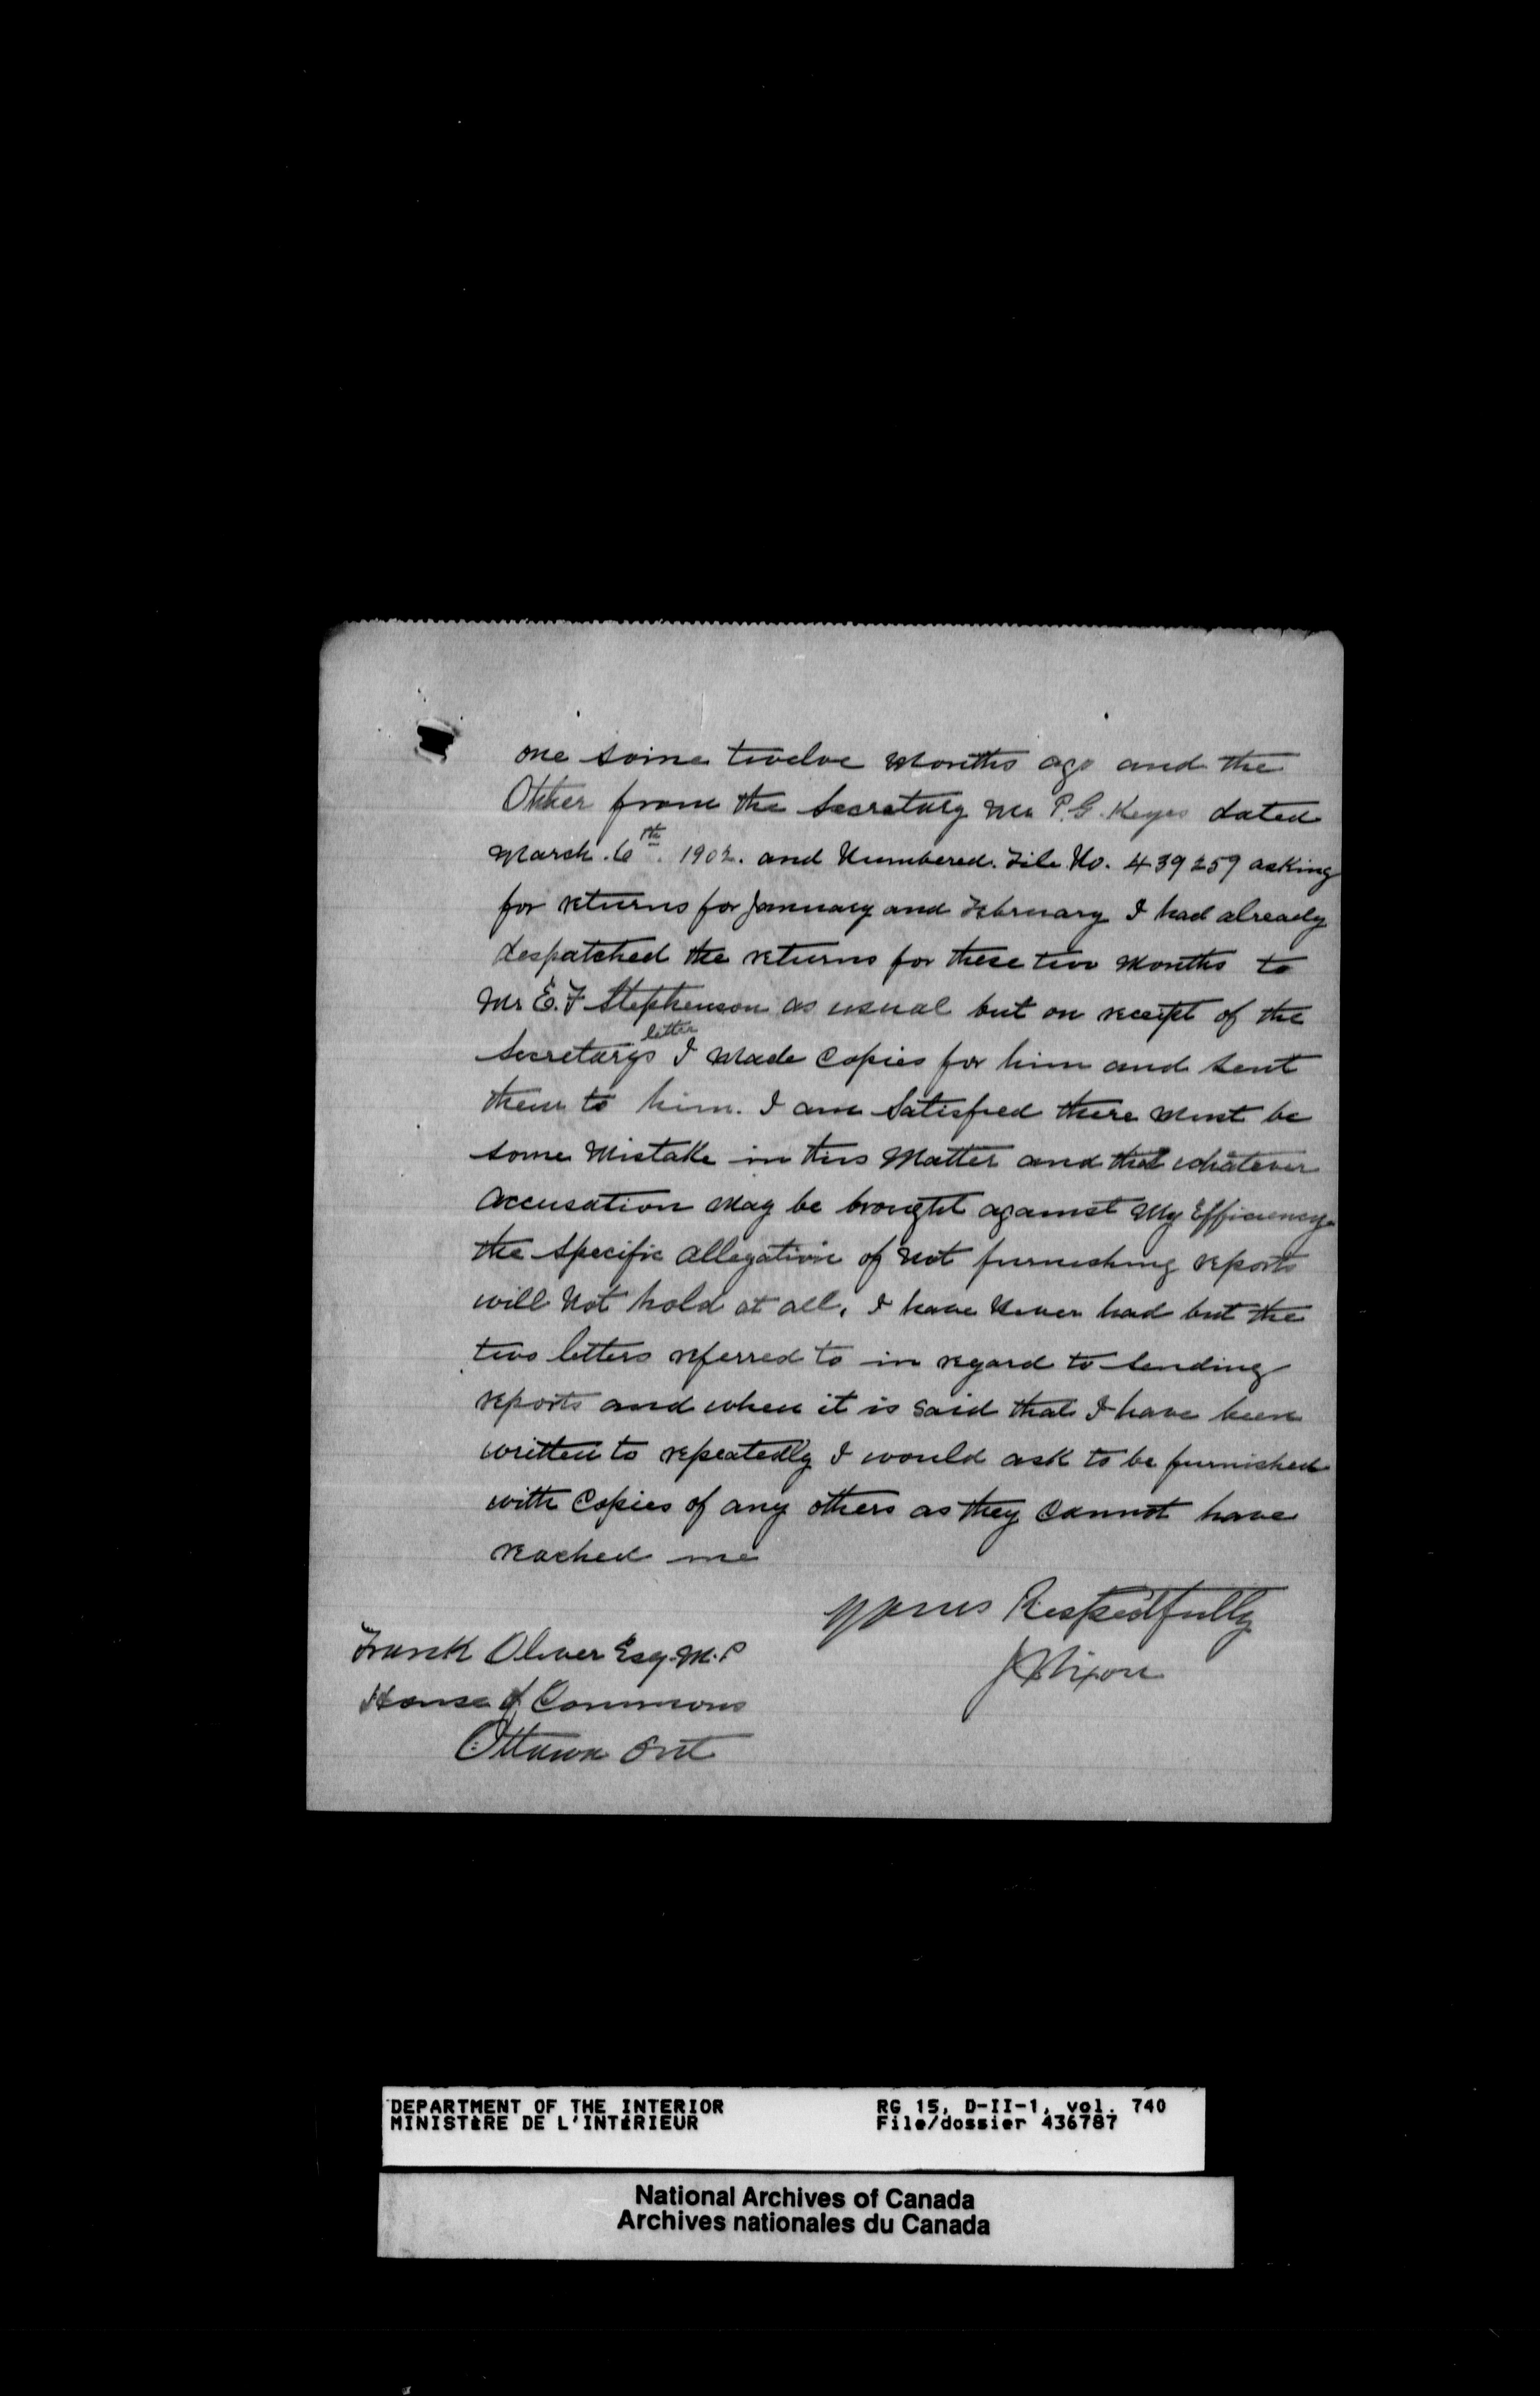 one some twelve months ago and the
Other from the Secretary Mr P.G. Keyes dated
March. 6th. 1902. and Numbered. File No. 439259 asking
for returns for January and February I had already
despatched the returns for these two months to
Mr E.F Stephenson as usual but on receipt of the
Secretarys letter I made copies for him and sent
them to him. I am satisfied there must be
some mistake in this matter and that whatever
accusation may be brought against my Efficiency
the specific allegation of not furnishing reports
will not hold at all, I have never had but the
two letters referred to in regard to sending
reports and when it is said that I have been
written to repeatedly I would ask to be furnished
with copies of any others as they cannot have
reached me
Yours Respectfully
Nixon
Frank Oliver Esq. M.P
House of Commons
Ottawa Ont
DEPARTMENT OF THE INTERIOR
MINISTÈRE DE L'INTÉRIEUR
RG 15, D-II-1, vol. 740
File/dossier 436787
National Archives of Canada
Archives nationales du Canada